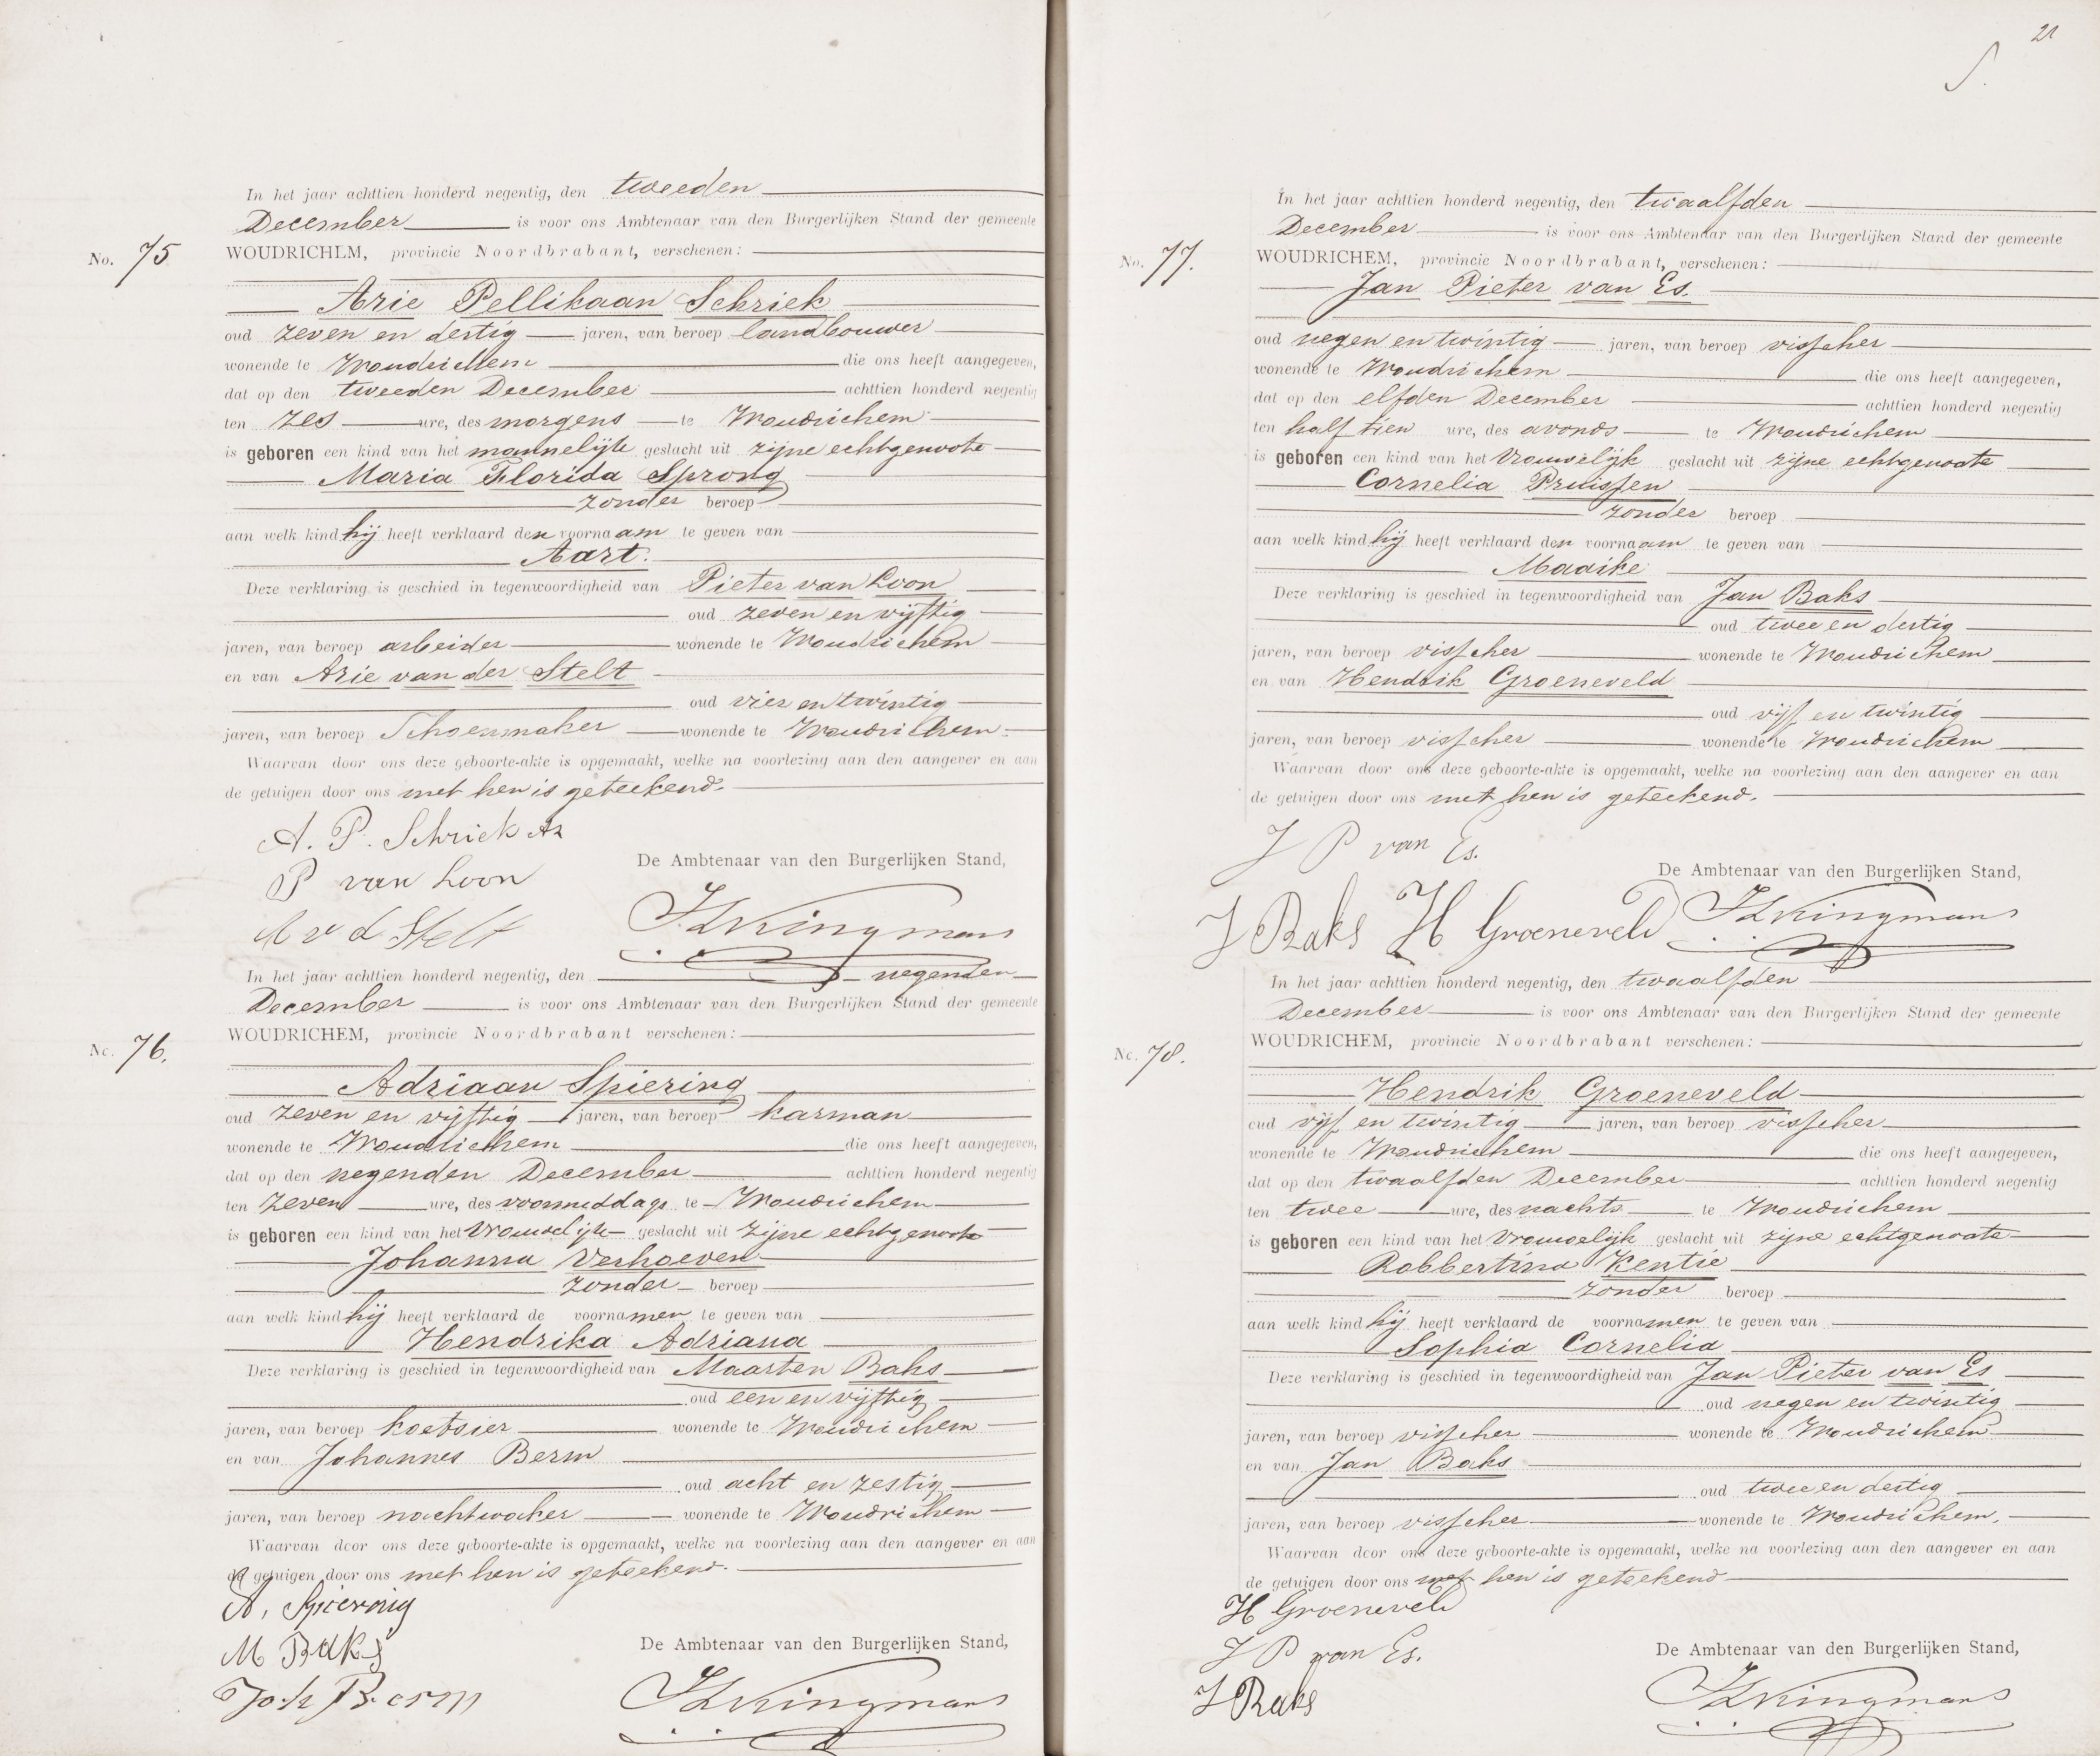 In het jaar achttien honderd negentig, den tweeden
December is voor ons Ambtenaar van den Burgerlijken Stand der gemeente
No. 75 WOUDRICHEM, provincie Noordbrabant, verschenen:
Arie Pellikaan Schriek
oud zeven en dertig jaren, van beroep landbouwer
wonende te Woudrichem die ons heeft aangegeven,
dat op den tweeden December achttien honderd negentig
ten zes ure, des morgens te Woudrichem
is geboren een kind van het mannelijke geslacht uit zijne echtgenoote
Maria Florida Sprong
zonder beroep
aan welk kind hij heeft verklaard den voornaam te geven van
Aart.
Deze verklaring is geschied in tegenwoordigheid van Pieter van Loon
oud zeven en vijftig
jaren, van beroep arbeider wonende te Woudrichem
en van Arie van der Stelt
oud vier en twintig
jaren, van beroep Schoenmaker wonende te Woudrichem
Waarvan door ons deze geboorte-akte is opgemaakt, welke na voorlezing aan den aangever en aan
de getuigen door ons met hen is geteekend.
A. P. Schriek Az
P van Loon
De Ambtenaar van den Burgerlijken Stand,
A v d Stelt
Kingmans
In het jaar achttien honderd negentig, den negenden
December is voor ons Ambtenaar van den Burgerlijken Stand der gemeente
No. 76. WOUDRICHEM, provincie Noordbrabant verschenen:
Adriaan Spiering
oud zeven en vijftig jaren, van beroep karman
wonende te Woudrichem die ons heeft aangegeven,
dat op den negenden December achttien honderd negentig
ten zeven ure, des voormiddags te Woudrichem
is geboren een kind van het vrouwelijke geslacht uit zijne echtgenoote
Johanna Verhoeven
zonder beroep
aan welk kind hij heeft verklaard de voornamen te geven van
Hendrika Adriana
Deze verklaring is geschied in tegenwoordigheid van Maarten Baks
oud een en vijftig
jaren, van beroep koetsier wonende te Woudrichem
en van Johannes Berm
oud acht en zestig
jaren, van beroep nachtwaker wonende te Woudrichem
Waarvan door ons deze geboorte-akte is opgemaakt, welke na voorlezing aan den aangever en aan
de getuigen door ons met hen is geteekend.
A, Spiering
M Baks
De Ambtenaar van den Burgerlijken Stand,
Joh Berm
Kingmans
21
In het jaar achttien honderd negentig, den twaalfden
December is voor ons Ambtenaar van den Burgerlijken Stand der gemeente
No. 77. WOUDRICHEM, provincie Noordbrabant, verschenen:
Jan Pieter van Es.
oud negen en twintig jaren, van beroep visscher
wonende te Woudrichem die ons heeft aangegeven,
dat op den elfden December achttien honderd negentig
ten half tien ure, des avonds te Woudrichem
is geboren een kind van het vrouwelijk geslacht uit zijne echtgenoote
Cornelia Pruissen
zonder beroep
aan welk kind hij heeft verklaard den voornaam te geven van
Maaike
Deze verklaring is geschied in tegenwoordigheid van Jan Baks
oud twee en dertig
jaren, van beroep visscher wonende te Woudrichem
en van Hendrik Groeneveld
oud vijf en twintig
jaren, van beroep visscher wonende te Woudrichem
Waarvan door ons deze geboorte-akte is opgemaakt, welke na voorlezing aan den aangever en aan
de getuigen door ons met hen is geteekend.
J P van Es.
De Ambtenaar van den Burgerlijken Stand,
J Baks H Groeneveld Kingmans
In het jaar achttien honderd negentig, den twaalfden
December is voor ons Ambtenaar van den Burgerlijken Stand der gemeente
No. 78. WOUDRICHEM, provincie Noordbrabant verschenen:
Hendrik Groeneveld
oud vijf en twintig jaren, van beroep visscher
wonende te Woudrichem die ons heeft aangegeven,
dat op den twaalfden December achttien honderd negentig
ten twee ure, des nachts te Woudrichem
is geboren een kind van het vrouwelijk geslacht uit zijne echtgenoote
Robbertina Kentie
zonder beroep
aan welk kind hij heeft verklaard de voornamen te geven van
Sophia Cornelia
Deze verklaring is geschied in tegenwoordigheid van Jan Pieter van Es
oud negen en twintig
jaren, van beroep visscher wonende te Woudrichem
en van Jan Baks
oud twee en dertig
jaren, van beroep visscher wonende te Woudrichem.
Waarvan door ons deze geboorte-akte is opgemaakt, welke na voorlezing aan den aangever en aan
de getuigen door ons met hen is geteekend
H Groeneveld
J P van Es.
De Ambtenaar van den Burgerlijken Stand,
J Baks
Kingmans